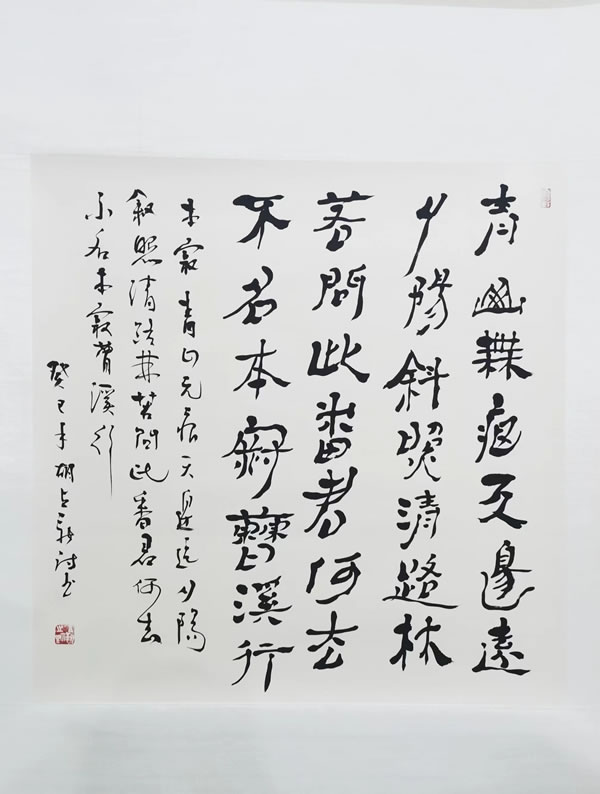 青山無痕天邊遠
夕陽斜照清路林
若問此番君何去
不名本寂曹溪行
本寂 青山无痕天邊遠夕陽
斜照清路林若問此番君何去
不名本寂曹溪行
癸巳年胡